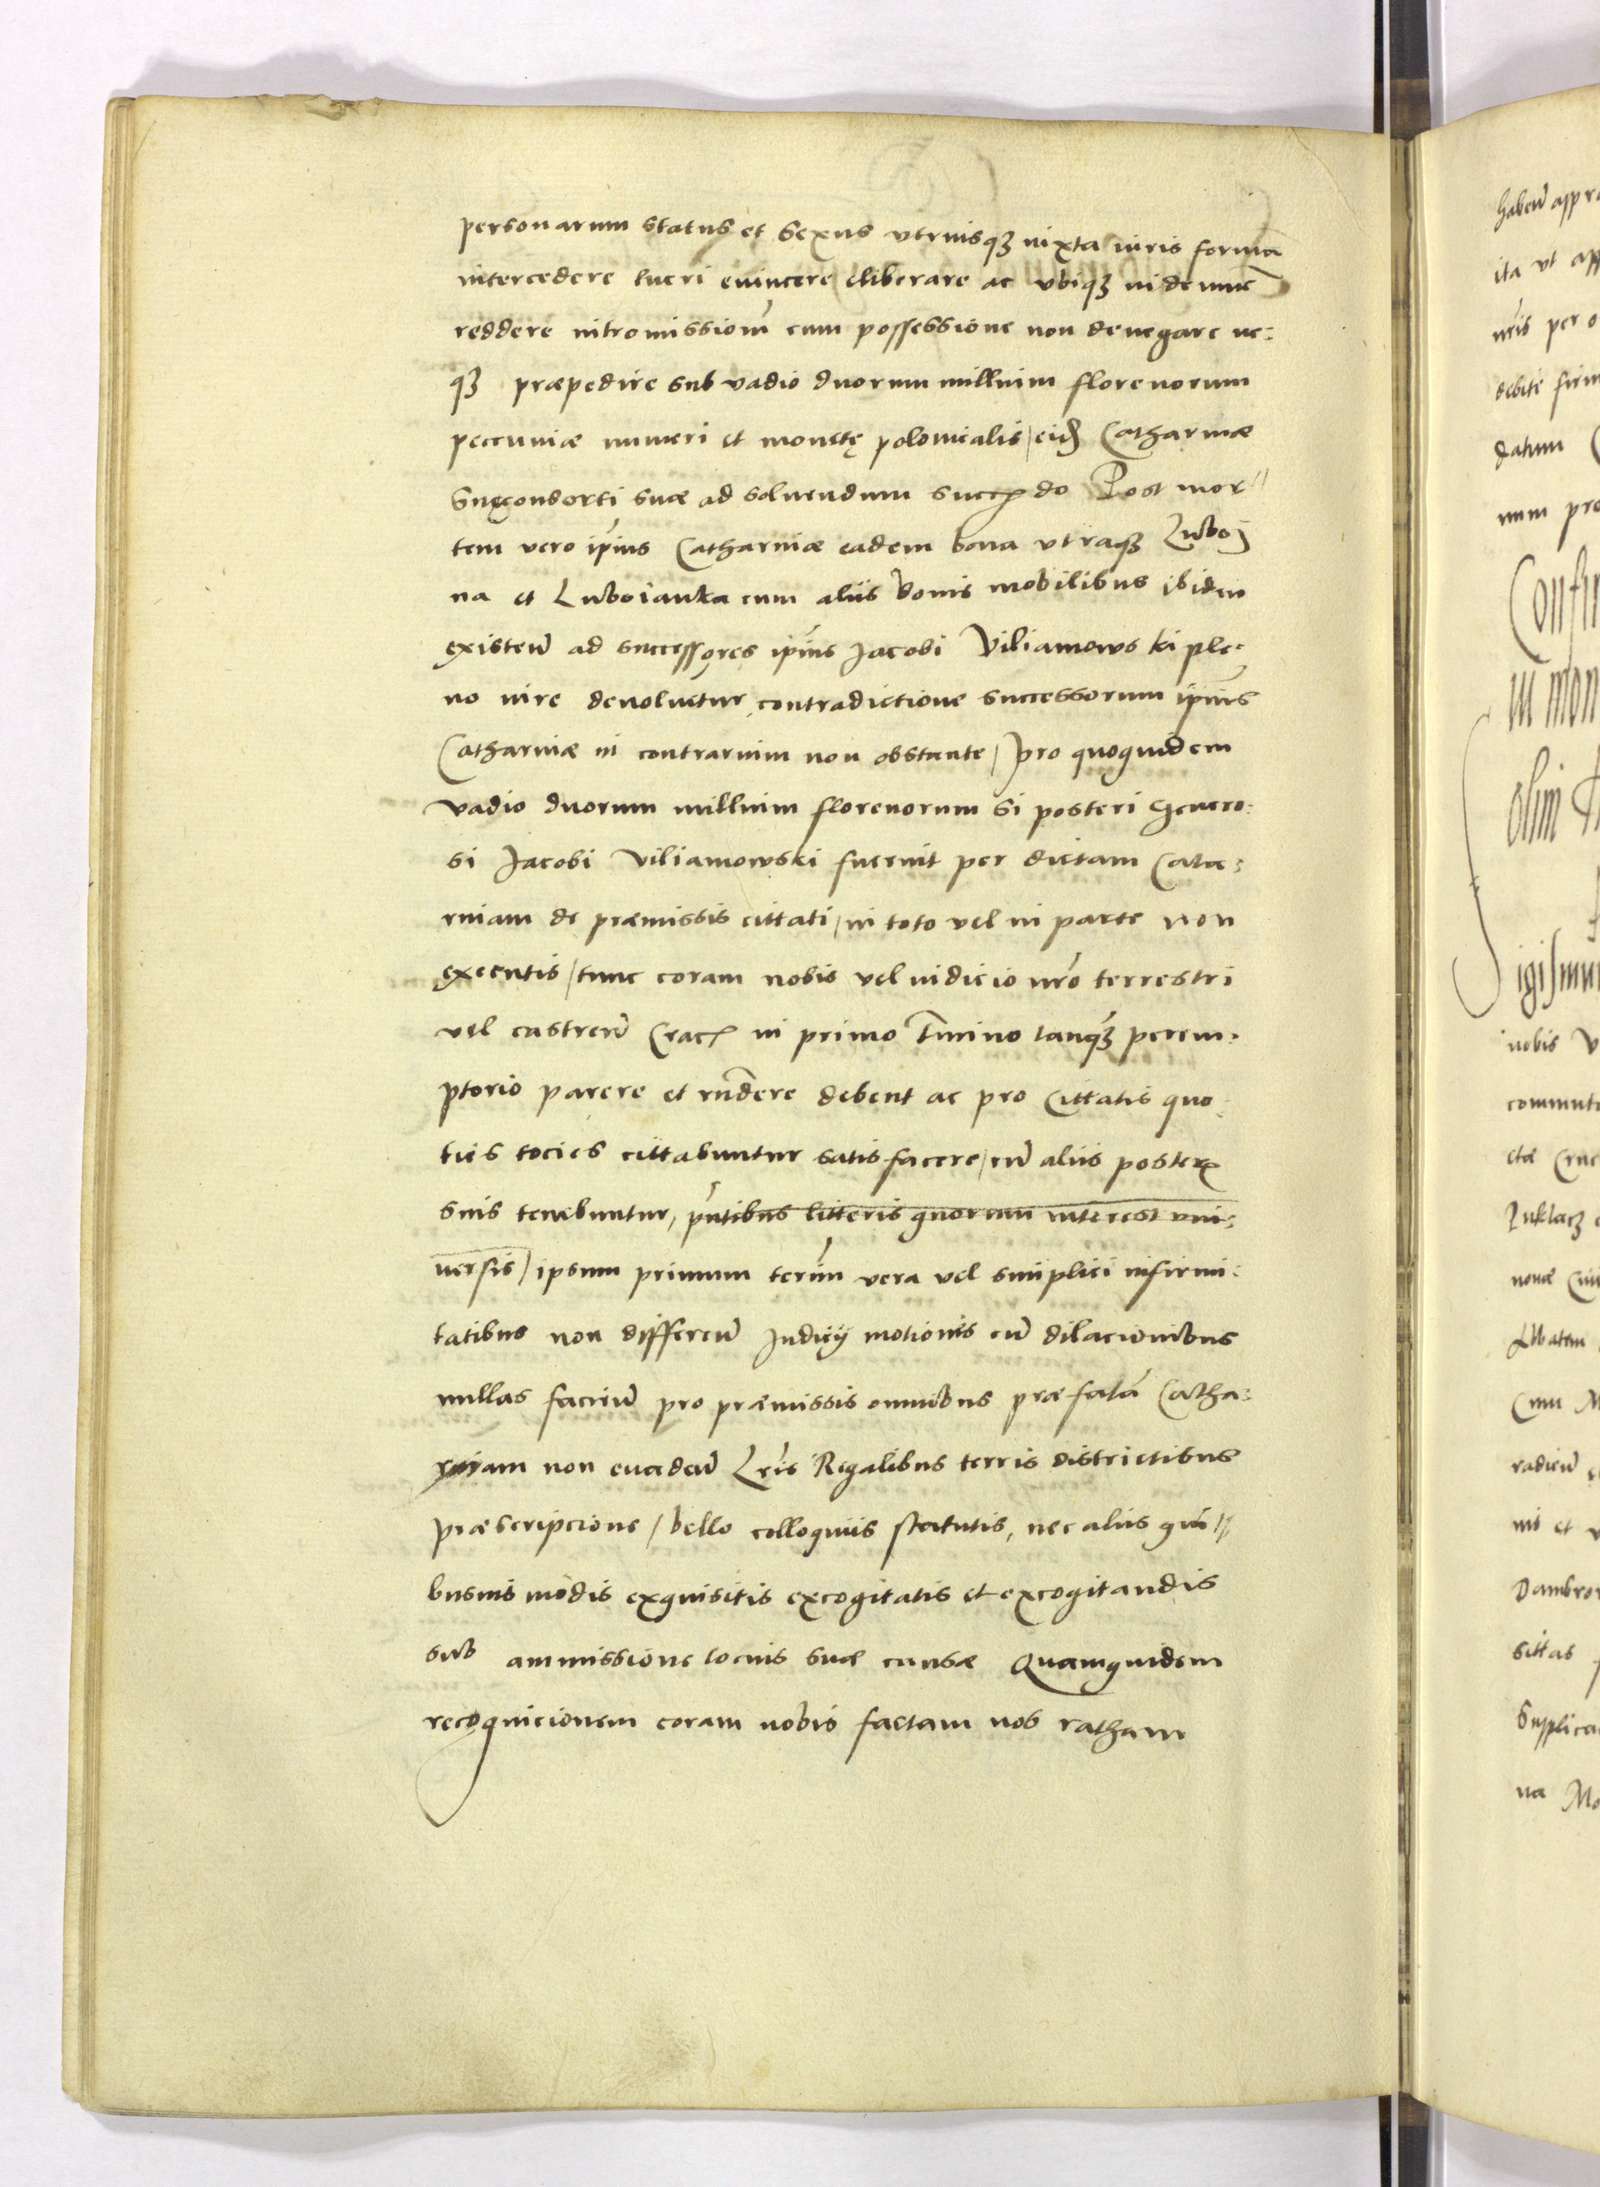 personarum status et Sexus vtriusqꝫ iuxta iuris formã
intercedere tueri euincere eliberare ac vbiqꝫ indemnẽ
reddere intromissionẽ cum possessione non denegare ne:
qꝫ præpedire sub vadio duorum millium florenorum
peccuniæ numeri et monetę polonicalis / eidẽ Catharinæ
suę consorti suæ ad soluendum succꝫdo Post mor„
tem vero ipĩus Catharinæ eadem bona vtraqꝫ Luboj
na et Luboianka cum aliis bonis mobilibus ibidẽ
existeñ ad successores ipĩus Jacobi Viliamowski ple:
no iure deuoluetur, contradictione successorum ipĩus
Catharinæ in contrarium non obstante / pro quoquidem
vadio duorum millium florenorum si posteri Genero:
si Jacobi Viliamowski fuerint per dictam Cata:
rinam de præmissis cittati / in toto vel in parte non
exemtis / tunc coram nobis vel iudicio nr̃o terrestri
vel castreñ Crac in primo Tmino tanqꝫ perem:
ptorio parere et rñdere debent ac pro cittatis quo:
ties tocies cittabuntur satisfacere / cũ aliis poster
suis tenebuntur, pñtibus litteris quorum interest vni:
uersis / ipsum primum termĩ vera vel simplici infirmi:
tatibus non differeñ Judicij motionis cũ dilacionibus
nullas facieñ pro præmissis omnibus præfatã Catha:
rinam non euadeñ Lr̃is Regalibus terris districtibus
præscripcione / bello colloquiis statutis, nec aliis qui„
busuis modis exquisitis excogitatis et excogitandis
sub ammissione locuis suæ causæ Quamquidem
recognicionem coram nobis factam nos ratham
habeñ
ita vt
nris per
debite
datum
num
Confir
in mon
olim
igismu
nobis
commuta
Crac
nouæ
Cum
radicũ
nis et
Dambro
sittas
Supplica
na